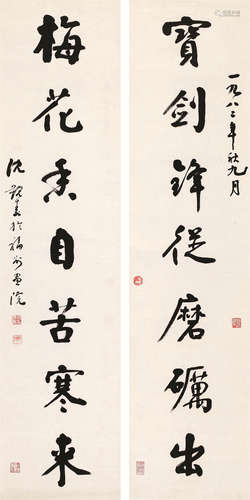 寶劍鋒從磨礪出
一九八二年秋九月
梅花香自苦寒来
沈覲壽於福州画院